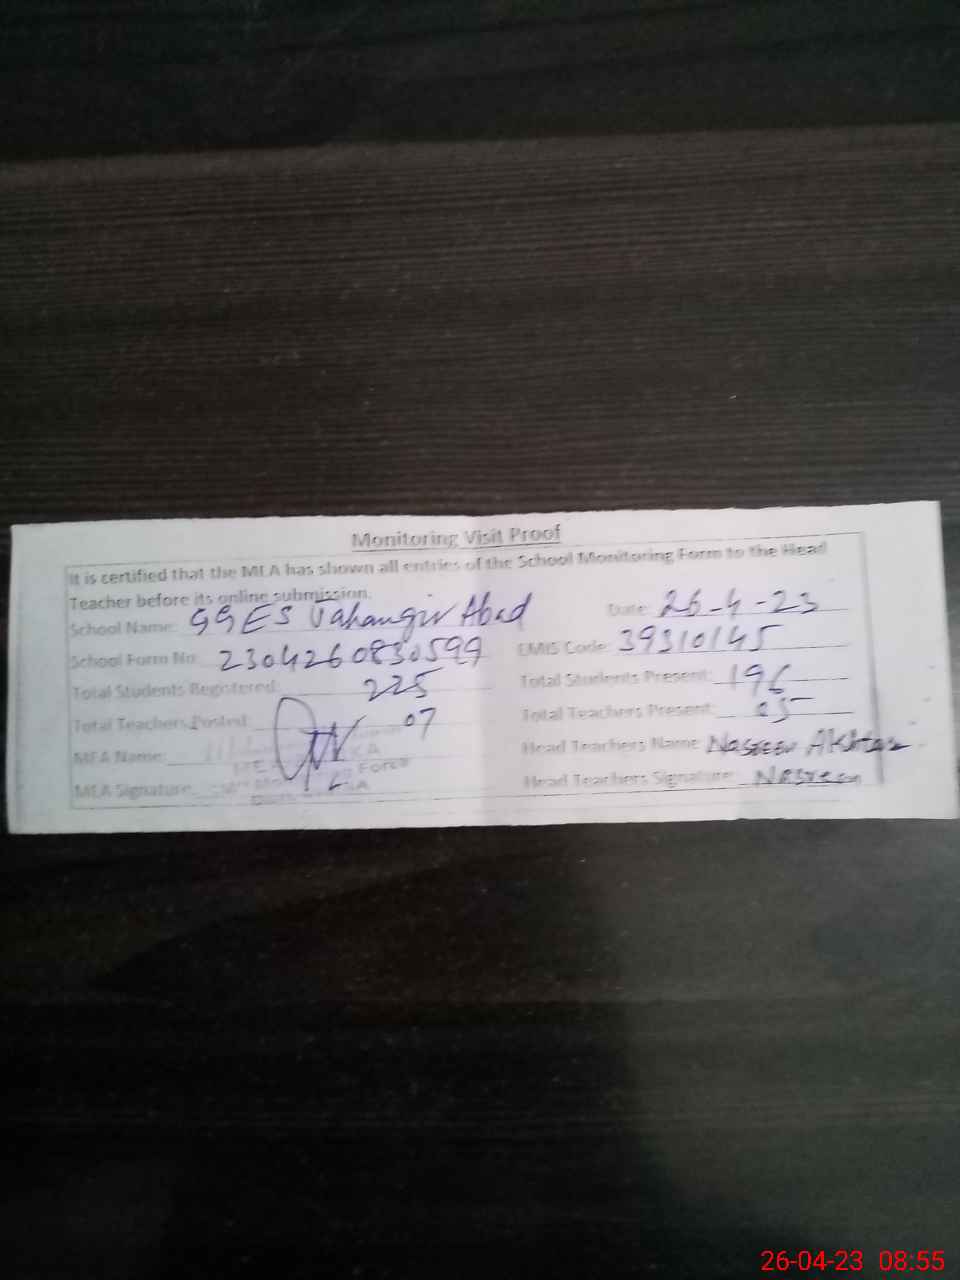 Monitoring Visit Proof
It is certified that the MEA has shown all entries of the School Monitoring Form to the Head
Teacher before its online submission.
School Name: GGES Jahangir Abad Date: 26-4-23
School Form No: 2304260830599 EMIS Code: 39310145
Total Students Registered: 225 Total Students Present: 196
Total Teachers Posted: 07 Total Teachers Present: 05
MEA Name: Head Teachers Name: Nasreen Akhtar
MEA Signature: Force Head Teachers Signature: Nasreen
26-04-23 08:55